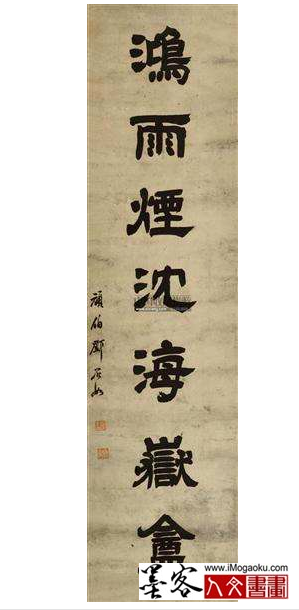 鴻雨煙沈海嶽盦
頑伯鄧石如
www.iMogaoku.com
墨客人文書畫